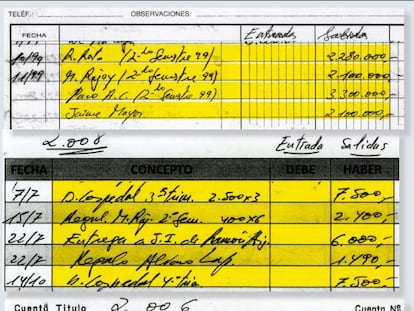 TELÉF.: OBSERVACIONES:
FECHA Entradas Salidas
10/99 R. Rato (2º Semestre 99) 2.280.000,-
11/99 M. Rajoy (2º Semestre 99) 2.100.000,-
Paco A.C. (2º Semestre 99) 3.300.000,-
Jaime Mayor 2.100.000,-
2.008 Entrada Salidas
FECHA CONCEPTO DEBE HABER
7/7 D. Cospedal 3º trim. 2.500x3 7.500,-
15/7 M. Raj. 2º Sem. 400x6 2.400,-
22/7 Entrega a J.I. de 6.000,-
22/7 Regalo 1.490,-
14/10 Cospedal 4º trim 7.500,-
Cuenta Título 2.006 Cuenta Nº